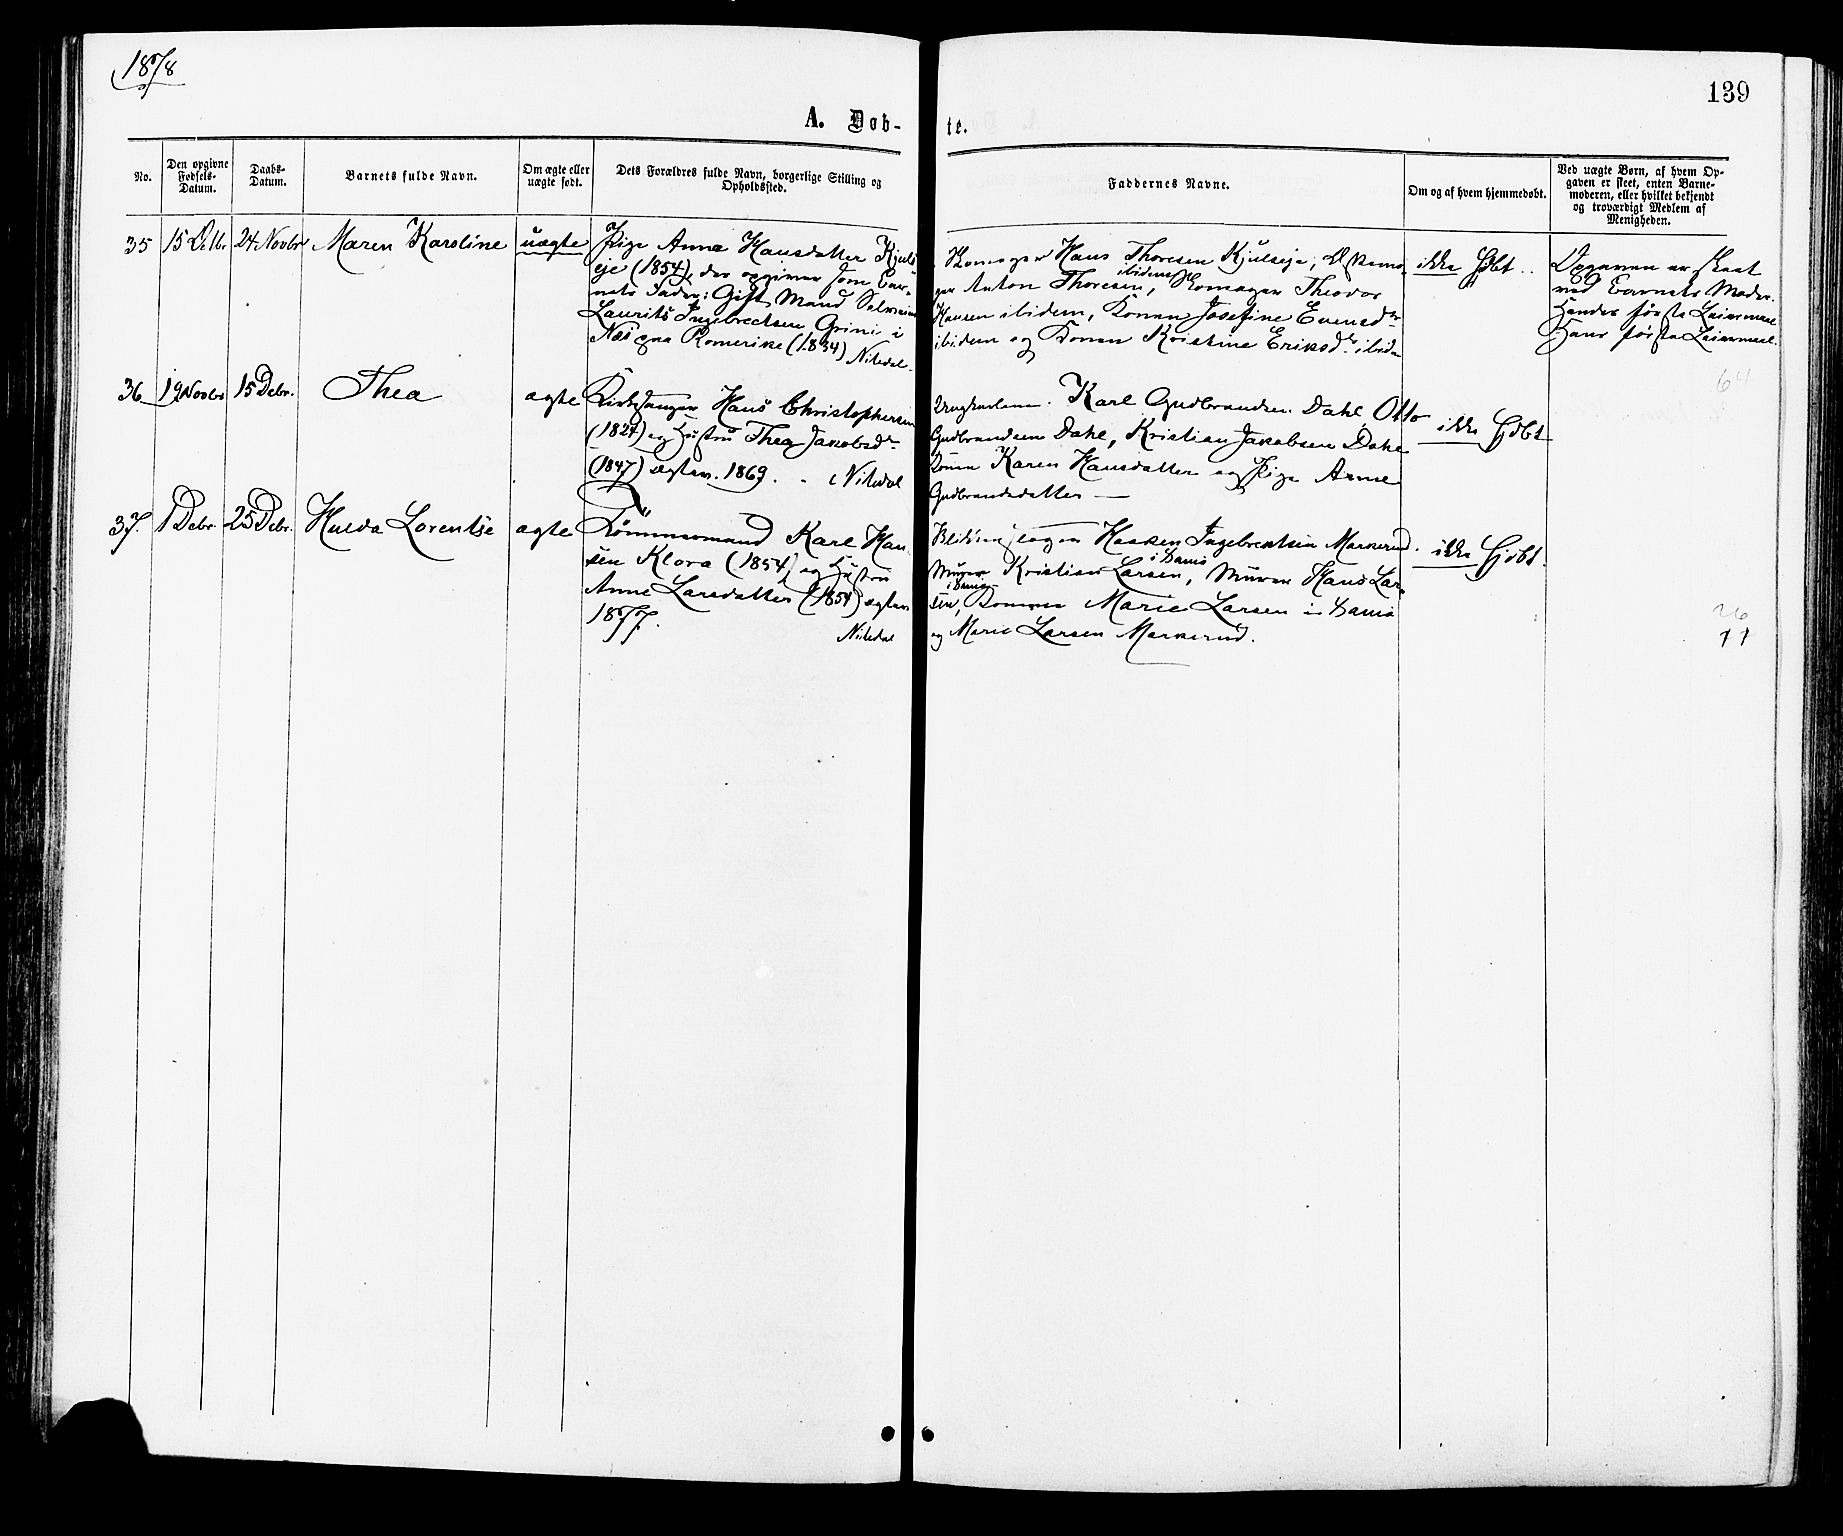 1878
139
A. Døb-
te.
No.
Den opgivne Fødsels-Datum.
Daabs-Datum.
Barnets fulde Navn.
Om ægte eller uægte født.
Dets Forældres fulde Navn, borgerlige Stilling og Opholdssted.
Faddernes Navne.
Om og af hvem hjemmedøbt.
Ved uægte Børn, af hvem Opgaven er skeet, enten Barnemoderen, eller hvilket bekjendt og troværdigt Medlem af Menigheden.
35 15 Octbr 24 Novbr Maren Karoline uægte
Pige Anne Hansdatter Kjuls
eje (1854), der opgiver som Bar-
nets Fader: Gift Mand
Laurits Ingebrectsen Grini i
Næs paa Romerike (1834)
Nitedal.
Skomager Hans Thoresen Kjulseje, Skoma-
ger Anton Thoresen ibidem, Skomager Theodor
Hansen ibidem, Konen Josefine Evensdr
ibidem og Konen Kristine Eriksdr ibidm
ikke Hjdbt
Opgaven er skeet
ved Barnets Moder.
Hendes første Leiermaal
Hans første Leiermaal.
64
36 19 Novbr 15 Debr. Thea ægte
Kirkesanger Hans Christophersen
(1827) og Hustru Thea Jakobsdr
(1847) ægtev. 1869. Nitedal
Karl Gudbrandsen Dahl Otto
Gudbrandsen Dahl, Kristian Jakobsen Dahl
Konen Karen Hansdatter og Pige Anne
Gudbrandsdatter —
ikke Hjdbt
37. 1 Debr. 25 Debr. Hulda Lorentse ægte
Tømmermand Karl Han-
sen Klora (1854) og Hustru
Anne Larsdatter (1854) ægtev
1877.
Nitedal
Haaken Ingebrentsen Markerud.
Murer Kristian Larsen, Murer Hans Lar-
sen, Konen Marie Larsen
og Marie Larsen Markerud.
ikke Hjdbt.
26
77